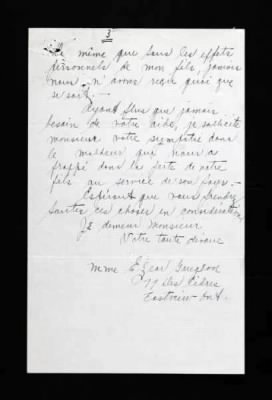 3
De même que tous les effets
personnels de mon fils, jamais
nous n'avons reçu quoi que
se soit. -
Ayant plus que jamais
besoin de votre aide, je sollicite
monsieur votre sympathie dans
le malheur que nous a
frappé dans la perte de notre
fils au service de son pays. -
Espérant que vous prendrez
toutes ces choses en considération
Je demeure Monsieur
Votre toute dévoué
Mme Edgar
79 des Cèdres
Eastview Ont.